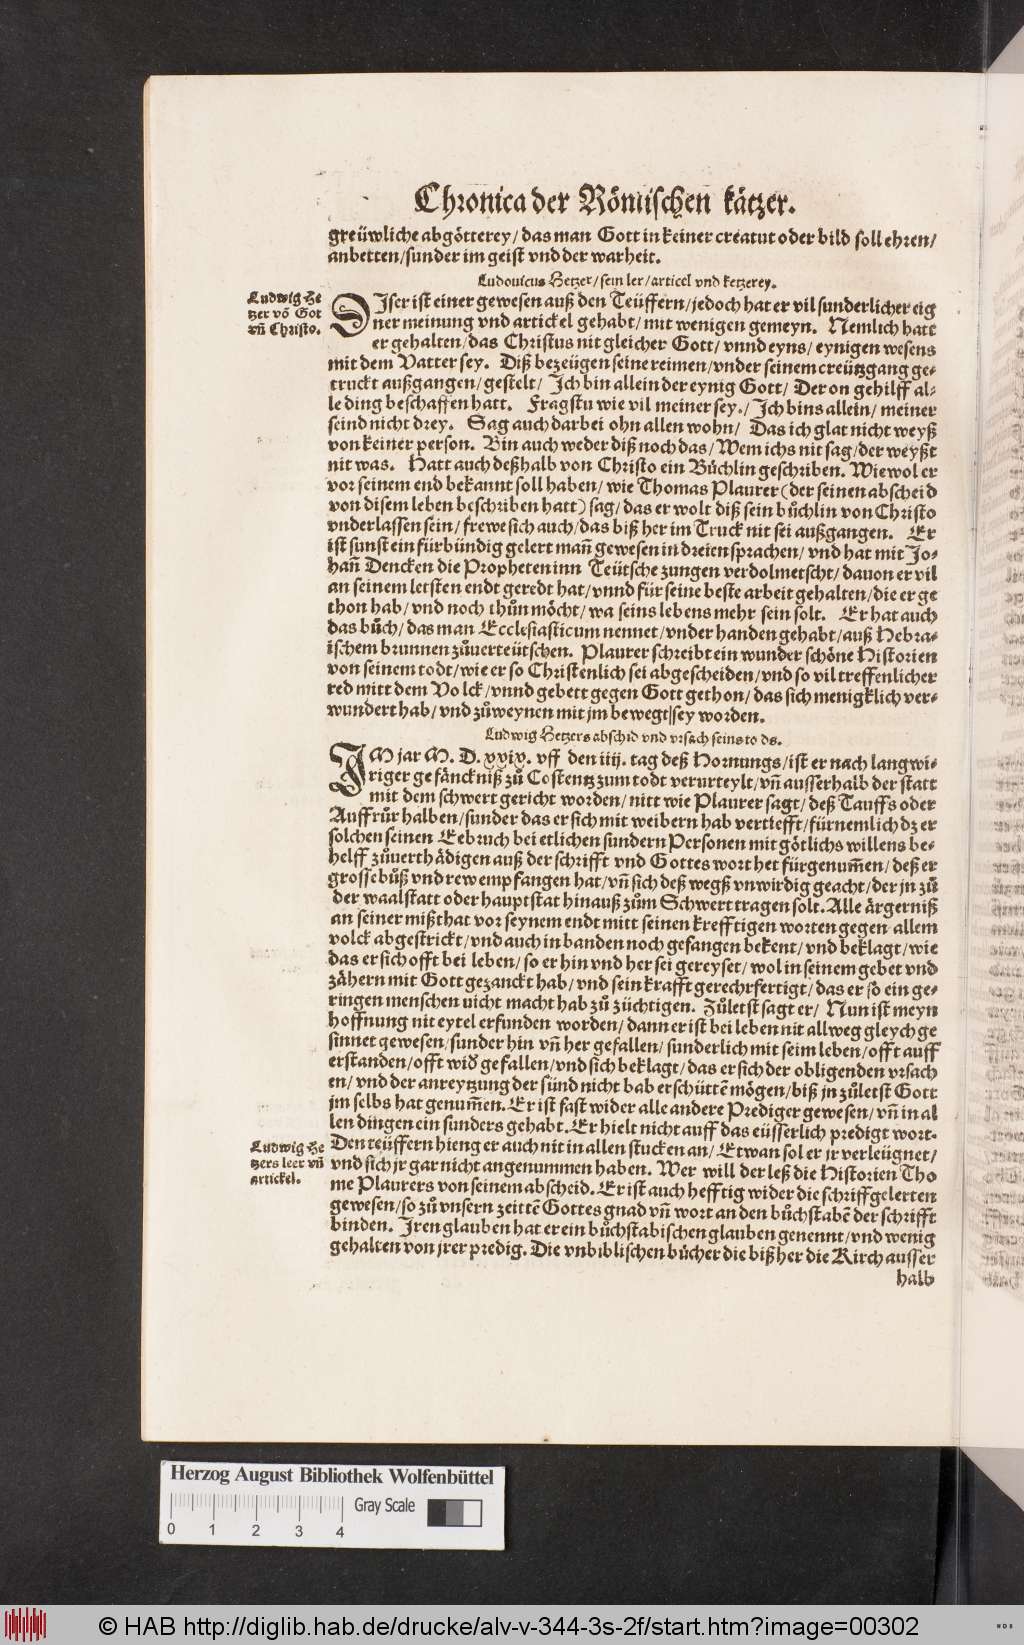 Chronica der Römischen kätzer.
greüwliche abgötterey/ das man Gott in keiner creatur oder bild soll ehren/
anbetten/ sunder im geist vnd der warheit.
Ludouicus Hetzer/ sein ler/ articel vnd ketzerey.
Ludwig He
tzer võ Got
vñ Christo.
DIser ist einer gewesen auß den Teüffern/ jedoch hat er vil sunderlicher eig
ner meinung vnd artickel gehabt/ mit wenigen gemeyn. Nemlich hatt
er gehalten/ das Christus nit gleicher Gott/ vnnd eyns/ eynigen wesens
mit dem Vatter sey. Diß bezeügen seine reimen/ vnder seinem creützgang ge-
truckt außgangen/ gestelt/ Ich bin allein der eynig Gott/ Der on gehilff al-
le ding beschaffen hatt. Fragstu wie vil meiner sey./ Ich bins allein/ meiner
seind nicht drey. Sag auch darbei ohn allen wohn/ Das ich glat nicht weyß
von keiner person. Bin auch weder diß noch das/ Wem ichs nit sag/ der weyßt
nit was. Hatt auch deßhalb von Christo ein Bůchlin geschriben. Wiewol er
vor seinem end bekannt soll haben/ wie Thomas Plaurer (der seinen abscheid
von disem leben beschriben hatt) sag/ das er wolt diß sein bůchlin von Christo
vnderlassen sein/ frewe sich auch/ das biß her im Truck nit sei außgangen. Er
ist sunst ein fürbündig gelert mañ gewesen in dreien sprachen/ vnd hat mit Jo-
hañ Dencken die Propheten inn Teütsche zungen verdolmetscht/ davon er vil
an seinem letsten endt geredt hat/ vnnd für seine beste arbeit gehalten/ die er ge
thon hab/ vnd noch thůn möcht/ wa seins lebens mehr sein solt. Er hat auch
das bůch/ das man Ecclesiasticum nennet/ vnder handen gehabt/ auß Hebra-
ischem brunnen zůverteütschen. Plaurer schreibt ein wunder schöne Historien
von seinem todt/ wie er so Christenlich sei abgescheiden/ vnd so vil treffenlicher
red mitt dem Volck/ vnnd gebett gegen Gott gethon/ das sich menigklich ver-
wundert hab/ vnd zůweynen mit jm bewegt sey worden.
Ludwig Hetzers abschid vnd vrsach seins to ds.
IM jar M. D. xxix. vff den iiij. tag deß Hornungs/ ist er nach langwi-
riger gefänckniß zů Costentz zum todt verurteylt/ vñ ausserhalb der statt
mit dem schwert gericht worden/ nitt wie Plaurer sagt/ deß Tauffs oder
Auffrůr halben/ sunder das er sich mit weibern hab vertiefft/ fürnemlich dz er
solchen seinen Eebruch bei etlichen sundern Personen mit götlichs willens be-
helff zůverthädigen auß der schrifft vnd Gottes wort het fürgenum̃en/ deß er
grosse bůß vnd rew empfangen hat/ vñ sich deß wegß vnwirdig geacht/ der jn zů
der waalstatt oder hauptstat hinauß zům Schwert tragen solt. Alle ärgerniß
an seiner mißthat vor seynem endt mitt seinen krefftigen worten gegen allem
volck abgestrickt/ vnd auch in banden noch gefangen bekent/ vnd beklagt/ wie
das er sich offt bei leben/ so er hin vnd her sei gereyset/ wol in seinem gebet vnd
zähern mit Gott gezanckt hab/ vnd sein krafft gerechrfertigt/ das er so ein ge-
ringen menschen uicht macht hab zů züchtigen. Zůletst sagt er/ Nun ist meyn
hoffnung nit eytel erfunden worden/ dann er ist bei leben nit allweg gleych ge
sinnet gewesen/ sunder hin vñ her gefallen/ sunderlich mit seim leben/ offt auff
erstanden/ offt wid̃ gefallen/ vnd sich beklagt/ das er sich der obligenden vrsach
en/ vnd der anreytzung der sünd nicht hab erschüttẽ mögen/ biß jn zůletst Gott
jm selbs hat genum̃en. Er ist fast wider alle andere Prediger gewesen/ vñ in al
len dingen ein sunders gehabt. Er hielt nicht auff das eüsserlich predigt wort.
Ludwig He
tzers leer vñ
artickel.
Den teüffern hieng er auch nit in allen stucken an/ Etwan sol er jr verleügnet/
vnd sich jr gar nicht angenummen haben. Wer will der leß die Historien Tho
me Plaurers von seinem abscheid. Er ist auch hefftig wider die schriffgelerten
gewesen/ so zů vnsern zeittẽ Gottes gnad vñ wort an den bůchstabẽ der schrifft
binden. Iren glauben hat er ein bůchstabischen glauben genennt/ vnd wenig
gehalten von jrer predig. Die vnbiblischen bůcher die bißher die Kirch ausser
halb
Herzog August Bibliothek Wolfenbüttel
Gray Scale
0 1 2 3 4
© HAB http://diglib.hab.de/drucke/alv-v-344-3s-2f/start.htm?image=00302